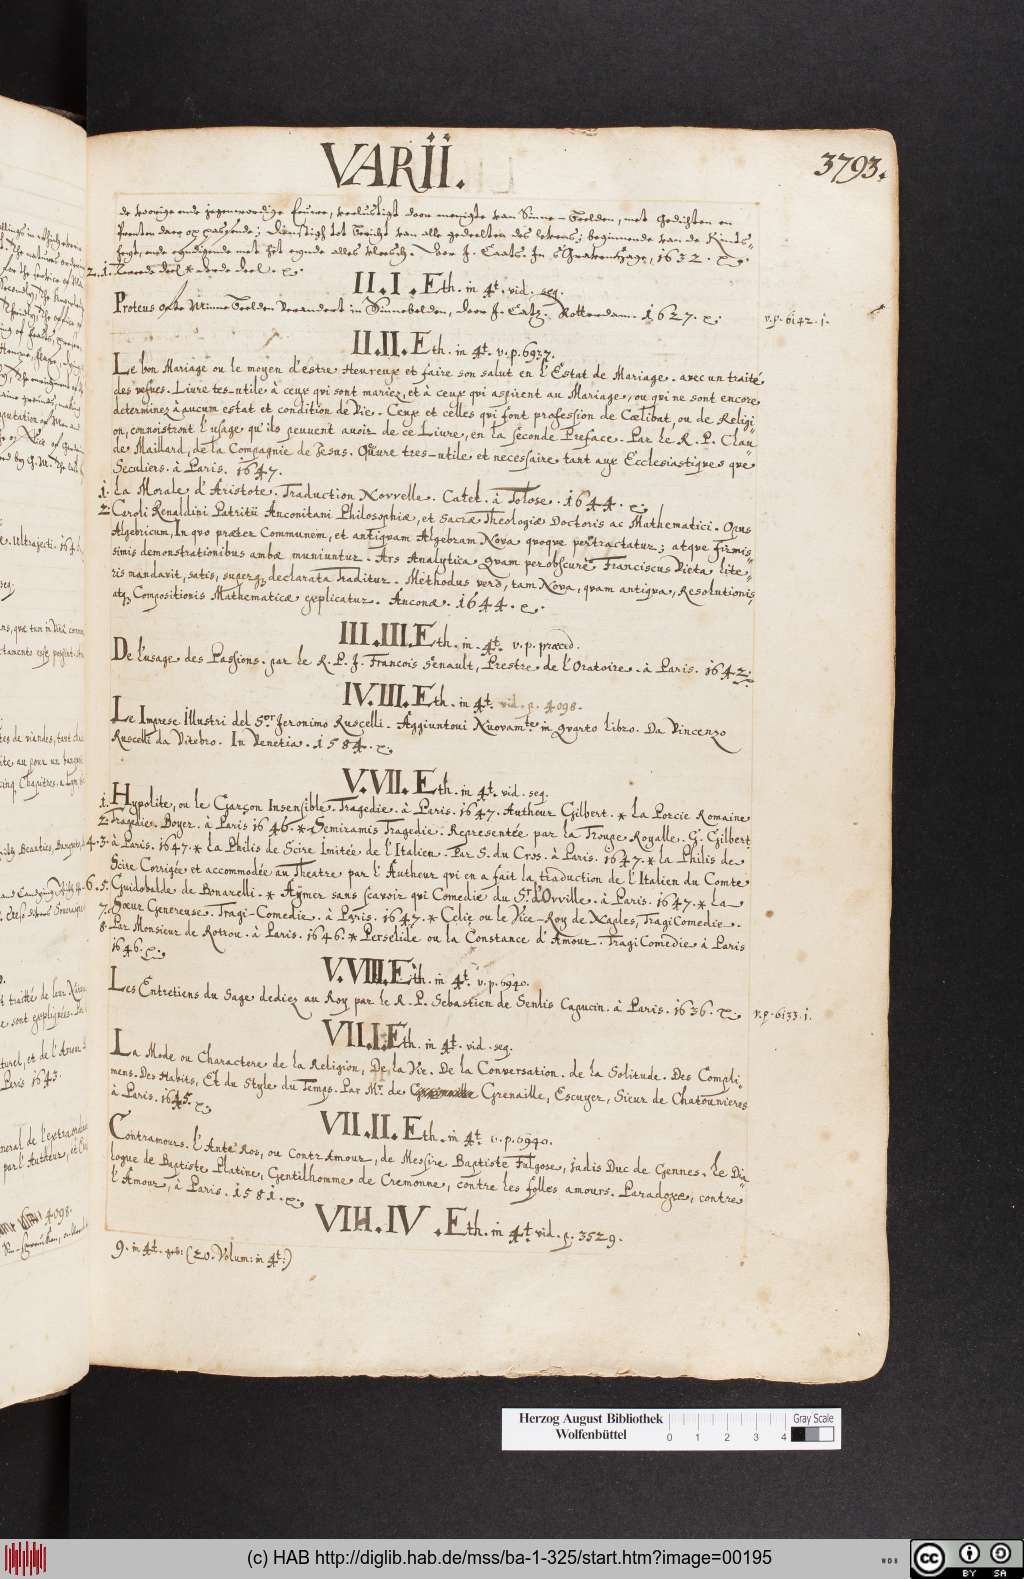 VARII.
3793.
de voorige ende jegenwoordige eeuwe, verlustigt door menigte van Sinne-beelden, met Gedichten en
Prenten daer op passende; Dienstigh tot bericht van alle gedeelten des levens; beginnende van de Kints-
heyt, ende eyndigende met het eynde alles vleesch. Door J. Caats. In s'Gravenhage, 1632.
2. 1. Tweede deel * derde deel.
II.I. Eth. in 4t. vid. seq.
Proteus ofte Minne beelden Verandert in Sinnebelden, door J. Catz. Rotterdam. 1627.
v.p. 6142. 1.
II.II. Eth. in 4t. v.p. 6937.
Le bon Mariage ou le moyen d'estre Heureux et faire son salut en l'Estat de Mariage. avec un traité
des vefues. Livre tes-utile à ceux qui sont mariez, et à ceux qui aspirent au Mariage, ou qui ne sont encore
determinez à aucum estat et condition de Vie. Ceux et celles qui font profession de Cœlibat, ou de Religi
on, connoistront l'usage qu'ils peuvent avoir de ce Livre, en la seconde Preface. Par le R. P. Clau
de Maillard, de la Compagnie de Jesus. Œuure tres-utile et necessaire tant aux Ecclesiastiques que
Seculiers. à Paris. 1647.
1. La Morale d'Aristote. Traduction Novvelle. Catel. à Tolose. 1644.
2. Caroli Renaldini Patritii Anconitani Philosophiæ, et Sacræ Theologiæ Doctoris ac Mathematici. Opus
Algebricum, In quo præter Communem, et antiquam Algebram Nova quoque pertractatur; atque firmis
simis demonstrationibus ambæ muniuntur. Ars Analytica Quam perobscurè Franciscus Vieta lite
ris mandavit, satis, superq; declarata Traditur. Methodus verò, tam Nova, quam antiqua, Resolutionis,
atq; Compositionis Mathematicæ explicatur. Anconæ. 1644.
III.III. Eth. in. 4t. v.p. præced.
De l'usage des Passions. par le R. P. J. Francois Senault, Prestre de l'Oratoire. à Paris. 1642.
IV.III. Eth. in 4t. vid. p. 4098.
Le Imprese Illustri del Sor Jeronimo Ruscelli. Aggiuntoui Nuovamte. in quarto libro. Da Vincenzo
Ruscelli da Viterbo. In Venetia. 1584.
V.VII. Eth. in 4t. vid. seq.
1. Hypolite, ou le Garçon Insensible. Tragedie. à Paris. 1647. Autheur Gilbert. * La Porcie Romaine
2. Tragedie. Boyer. à Paris 1646. * Semiramis Tragedie. Representée par la Troupe Royalle. G. Gilbert
4. 3. à Paris. 1647. * La Philis de Scire Imitée de l'Italien. Par S. du Cros. à Paris. 1647. * la Philis de
Scire Corrigée et accommodée au Theatre par l'Autheur qui en a fait la traduction de l'Italien du Comte
6. 5. Guidobalde de Bonarelli. * Aymer sans sçavoir qui Comedie du Sr. d'Ovville. à Paris. 1647. * La
7. Sœur Genereuse. Tragi-Comedie. à Paris. 1647. * Celie ou le Vice-Roy de Naples, TragiComedie.
8. Par Monsieur de Rotrou. à Paris. 1646. * Perselide ou la Constance d'Amour. TragiComedie à Paris
1646.
V.VIII. Eth. in 4t. v.p. 6940.
Les Entretiens du Sage dediez au Roy par le R. P. Sebastien de Senlis Capucin. à Paris. 1636.
v.p. 6133. 1.
VII.I. Eth. in 4t. vid. seq.
La Mode ou Charactere de la Religion, De la Vie. De la Conversation. de la Solitude. Des Compli
mens. Des Habits, Et du Style du Temps. Par Mr. de Grenaille, Escuyer, Sieur de Chatounieres
à Paris. 1645.
VII.II. Eth. in 4t. v.p. 6940.
Contramours. l'Ante Ros, ou Contramour, de Messire Baptiste Fulgose, jadis Duc de Gennes. Le Dia
logue de Baptiste Platine, Gentilhomme de Cremonne, contre les folles amours. Paradoxe, contre
l'Amour, à Paris. 1581.
VIII.IV. Eth. in 4t. vid. p. 3529.
9. in 4t. (20. Volum: in 4t.)
Herzog August Bibliothek
Wolfenbüttel
0 1 2 3 4
Gray Scale
(c) HAB http://diglib.hab.de/mss/ba-1-325/start.htm?image=00195
WDB
cc BY SA